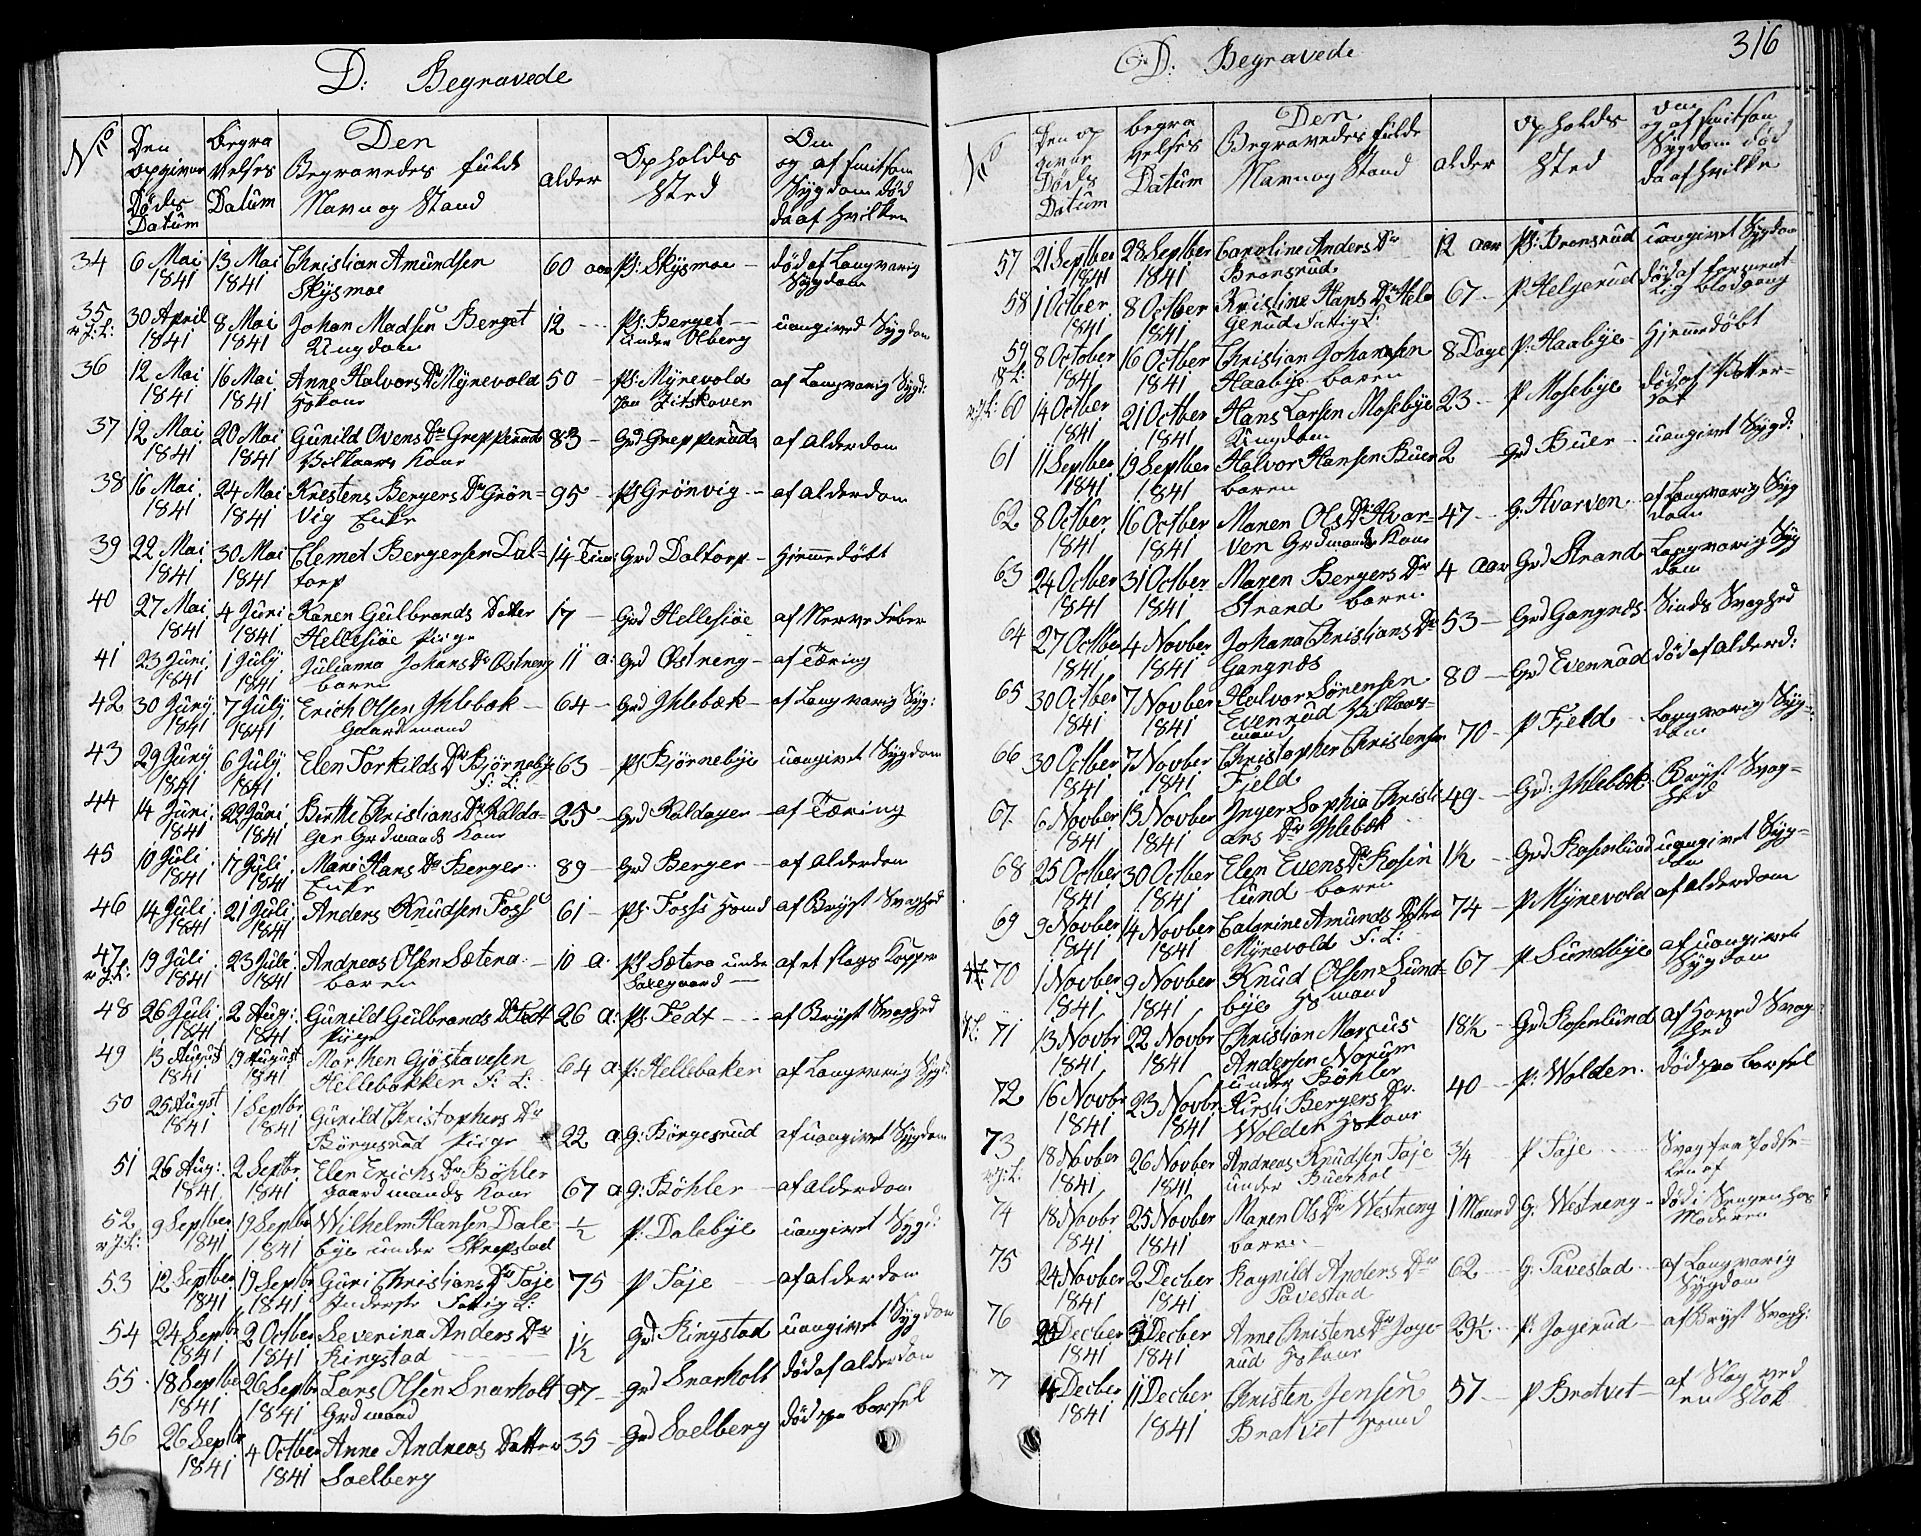 D: Begravede
No
Den opgivne Døds Datum
Begravelses Datum
Den Begravedes fulde Navn og Stand
alder
Opholds Sted
Om og af smitsom Sygdom død da af hvilken
34 6 Mai 1841 13 Mai 1841 Christian Amundsen Skysmoe 60 aar Ps: Skysmoe – død af Langvarig Sygdom
35 30 April 1841 8 Mai 1841 Johan Madsen Berget Ungdom 12 Ps: Berget under Olberg uangived Sygdom
36 12 Mai 1841 16 Mai 1841 Anne Halvors Dr Mÿnevold Hskone 50 – Ps: Mÿnevold af Langvarig Sygd:
37 12 Mai 1841 20 Mai 1841 Gunild Ovens Dr Grepperud Vilkaars Kone 83 – Grd Grepperud af Alderdom
38 16 Mai 1841 24 Mai 1841 Kirstens Bergers Dr Grönvig Enke 95 – Ps Grönvig – af alderdom
39 22 Mai 1841 30 Mai 1841 Clemet Bergersen Daltorp 14 Timer Grd Daltorp – Hjemmedøbt
40 27 Mai 1841 4 Juni 1841 Karen Gulbrands Datter Hellesiøe Pige 17 – Grd Hellesiøe – af Nerve Feber
41 23 Juni 1841 1 July 1841 Julianna Johans Dr Østneng baren 11 a: Grd Østneng – af Tæring
42 30 Juny 1841 7 July 1841 Erich Olsen Ihlebæk – Gaardmand 64 – Grd Ihlebæk – af Langvarig Syg:
43 29 Juny 1841 6 July 1841 Elen Torkilds Dr Bjørnebye F: L: 63 – Ps Bjørnebye uangivet Sygdom
44 14 Juni 1841 22 Juni 1841 Birthe Christians Dr Kaldager Grdmands Kone 25 – Grd Kaldager – af Tæring
45 10 Juli 1841 17 Juli 1841 Mari Hans Dr Berger Enke 89 – Grd Berger – af Alderdom
46 14 Juli 1841 21 Juli 1841 Anders Knudsen Foss 61 – Ps: Foss Hsmd af Bryst Svaghed
47 19 Juli 1841 23 Juli 1841 Andreas Olsen Sætera baren 10 a: Ps Sætera under af et slags Kopper
48 26 Juli 1841 2 Aug: 1841 Gunild Gulbrands Dr Fedt Pige 26 a: Ps: Fedt – af Bryst Svaghed
49 13 August 1841 19 August 1841 Morthen Gjøstavesen Hellebækken F: L: 64 a: P: Hellebækken af Langvarig Syg:
50 25 Augst 1841 1 Septbr 1841 Gunild Christophers Dr Børgesrud Pige 22 a: G: Børgesrud af uangivet Sygdom
51 26 Aug: 1841 2 Septbr 1841 Elen Erichs Dr Bøhler gaardmands Kone 67 a: G: Bøhler – af alderdom
52 9 Septber 1841 19 Septbr 1841 Wilhelm Hansen Dalebye under Skrepstad ½ P: Dalebye uangivet Sygd:
53 12 Septber 1841 19 Septbr 1841 Guri Christians Dr Taje Fattig L: 75 P Taje – af alderdom
54 24 Septbr 1841 2 Octber 1841 Severina Anders Dr Ringstad 1½ Grd Ringstad uangivet Sygdom
55 18 Septber 1841 26 Septbr 1841 Lars Olsen Snarholt Grdmand 97 – Grd Snarholt død af alderdom
56 26 Septbr 1841 4 Octber 1841 Anne Andreas Datter Soelberg 35 – Grd Soelberg død paa barsel
D: Begravede
316
No
Den opgivne Døds Datum
begravelses Datum
Den Begravedes fulde Navn og Stand
alder
Opholds Sted
om og af smitsom Sygdom død da af hvilke
57 21 Septber 1841 28 Septber 1841 Caroline Anders Dr Bransrud 12 aar Ps: Bransrud uangivet Sygdom
58 1 Octber 1841 8 Octber 1841 Kristine Hans Dr Helgerud Fattig L: 67 – P Helgerud død af Blodgang
59 8 October 1841 16 Octber 1841 Christian Johansen Haabÿe baren 8 Dage P: Haabÿe – Hjemmedøbt
60 14 Octber 1841 21 Octber 1841 Hans Larsen Mosebÿe Ungdom 23 – P Mosebÿe død af
61 11 Septber 1841 19 Septber 1841 Halvor Hansen Buer baren 2 – Grd Buer – uangivet Sygd:
62 8 Octber 1841 16 Octber 1841 Maren Ols Dr Hvarven Grdmands Kone 47 – G: Hvarven – af Langvarig Sygdom
63 24 Octber 1841 31 Octber 1841 Maren Bergers Dr Strand baren 4 aar Grd Strand Langvarig Sygdom
64 27 Octber 1841 4 Novber 1841 Johana Christians Dr Gangnæs 53 – Grd Gangnæs Sinds Svaghed
65 30 Octber 1841 7 Novber 1841 Halvor Sörensen Evenrud Vilkaarsmand 80 – Grd Evenrud død af alderd:
66 30 Octber 1841 7 Novber 1841 Christopher Christensen Fjeld 70 – P Fjeld – Langvarig Sygdom
67 6 Novber 1841 13 Novber 1841 Inger Sophia Christians Dr Ihlebæk 49 – Grd: Ihlebæk Bryst Svaghed
68 25 Octber 1841 30 Octber 1841 Elen Evens Dr Rosenlund baren 1½ – Grd Rosenlund uangivet Sygdom
69 9 Novber 1841 14 Novber 1841 Catarine Amunds Dotter Mÿnevold F: L: 74 – P Mÿnevold af alderdom
70 1 Novber 1841 9 Novber 1841 Knud Olsen Sundbÿe Hsmand 67 – P Sundbÿe af uangivet Sygdom
71 13 Novbr 1841 22 Novbr 1841 Christian Marcus Andersen Norum under Bøhler 18½ – Grd Rosenlund af Hoved Svaghed
72 16 Novbr 1841 23 Novbr 1841 Kirsti Bergers Dr. Wolden Hskone 40 – P: Wolden – død paa barsel
73 18 Novber 1841 26 Novber 1841 Andreas Knudsen Taje under Buerhol ¾ – P Taje – Svag fra Fødselen af
74 18 Novbr 1841 25 Novber 1841 Maren Ols Dr Westreng baren 1 Maaned G: Westreng – død i Sengen hos Moderen
75 24 Novber 1841 2 Decber 1841 Ragnild Anders Dr Tavestad 62 – G: Tavestad – af Langvarig Sygdom
76 Decber 1841 Decber 1841 Anne Christens Dr Jogerud Hskone 29½ – P: Jogerud – af Bryst Svagh:
77 4 Decber 1841 11 Decber 1841 Christen Jensen Bratvet Hsmd 57 – P Bratvet – af Slag ved en Stok